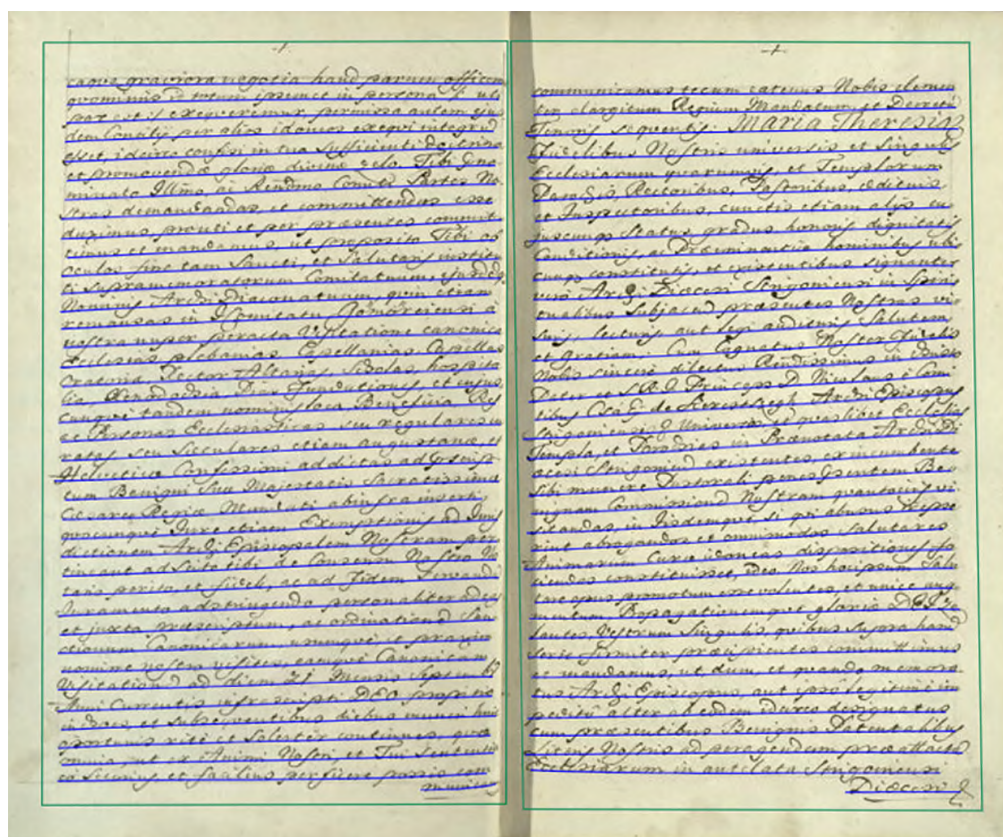 eaque graviora negotia haud parum officere
quominus id totum ipsemet in persona ut
par est exequeremur, permissa autem ejus
dem Concilij per alios idoneos exequi integrum
esset, idcirco confisi in tua sufficienti doctrina
et promovendæ gloriæ divinæ zelo Tibi præno
minato Illmo ac Rendmo Comiti Partes No
stras demandandas, et committendas esse
duximus, prouti et per præsentes commit
timus et mandamus, ut præposito Tibi ob
oculos fine tam Sancti, et Salutaris instituti
supramemoratorum Comitatuum ejusdemque
Nominis Archi Diaconatuum, quin etiam
remansas in Comitatu a
nostra nuper peracta Visitatione canonica
Ecclesias plebanias, Capellanias, Capellas
Oratoria, Rector Altarias, Scholas, hospita
lia, Fundationes et cujus
cunque tandem nominis loca Beneficia Res
ac Personas Ecclesiasticas seu regulares
seu Seculares etiam augustanæ et
Helveticæ Confessioni addictas ad præscrip
tum Benigni Suæ Majestatis Sacratissimæ
Cæsareo Regiæ Mandati abinfra inserti
quocunque Jure etiam Exemptionis ad Juris
dictionem Archi Episcopalem Nostram per
tineant adscito tibi de Consensu Nostro No
tario perito, et fideli, ac ad Fidem servandam
Juramento adstringendo personaliter
et juxta præscriptum, ac ordinationem San
ctionum Canonicarum, usumque et praxim
nomine nostro visites, eamque Canonicam
Visitationem ad diem 21 Mensis Septembris
Anni Currentis infrascripti DEO propitio
inchoes, et subsequentibus diebus
oportunis rite et solerter continues, quo
omnia, ut ex Animi Nostri, et Tui sententia
eo securius et facilius perficere possis com
munica
communicamus tecum eatenus Nobis clemen
ter elargitum Regium Mandatum, et Decretum
Tenoris sequentis. Maria Theresia &
Fidelibus Nostris universis et singulis
Ecclesiarum quarumvis, et Templorum
Parochis, Rectoribus, Pastoribus, ædituis
et Inspectoribus, cunctis etiam alijs cu
juscunque Status, gradus honoris dignitatis
Conditionis, ac Præeminentiæ hominibus ubi
cunque constitutis, et existentibus signanter
vero Archi Diœcesi Strigoniensi in spiri
tualibus Subjacend præsentes Nostras vi
suris, lecturis, aut legi audituris Salutem
et Gratiam. Cum Cognatus Noster Fidelis
Nobis sincere dilectus Rendissimus in Christo
Pater et S. R. I. Princeps D. Nicolaus e Comi
tibus Csáky de Keresztszegh Archi Episcopus
Strigoniensis Universas, et quaslibet Ecclesias
Templa, et Parochias in Prænotata Archi Di
œcesi Strigoniensi existentes, ex incumbente
sibi munere Pastorali penes præsentem Be
nignam Commissionem Nostram quantocius vi
sitandas, in ijsdemque, si qui abusus
sint abrogandos et omnimodas salutares
Animarum Curæ idoneas dispositiones fa
ciendas constituisset, ideo Nos hoc ipsum Salu
tare opus promotum esse volentes, et unice aug
mentum Propagationemque gloriæ DEI
lantes, Vestrum Singulis, quibus supra harum
serie firmiter præcipientes committimus
ac mandamus, ut dum, et quando memora
tus Archi Episcopus, aut ipso legitime im
pedito alter ab eodem designatus
cum præsentibus Benignis Patentalibus
Litteris Nostris ad peragendum præattactam
Ecclesiarum in antelata Strigoniensi
Diœcesi